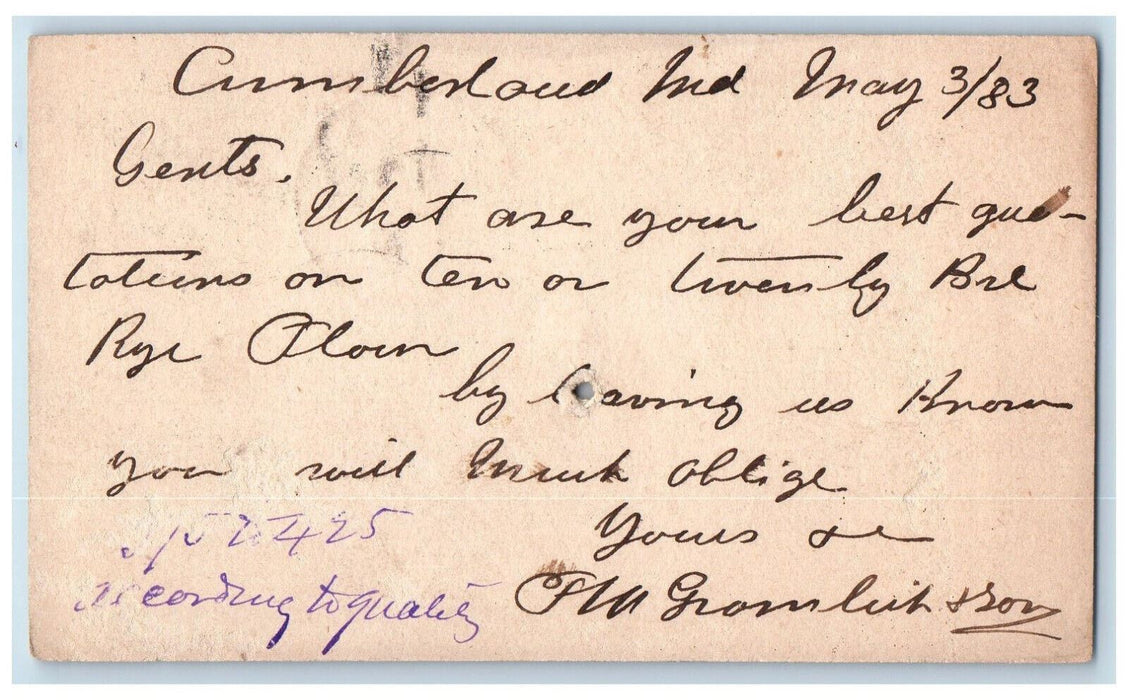 Cumberland Md May 3/83
Gents.
What are your best quo-
tations on ten or twenty Brl
Rye Flour
by having us Know
you will Much Oblige
Yours &c
Gramlich & Son
425
according to quality